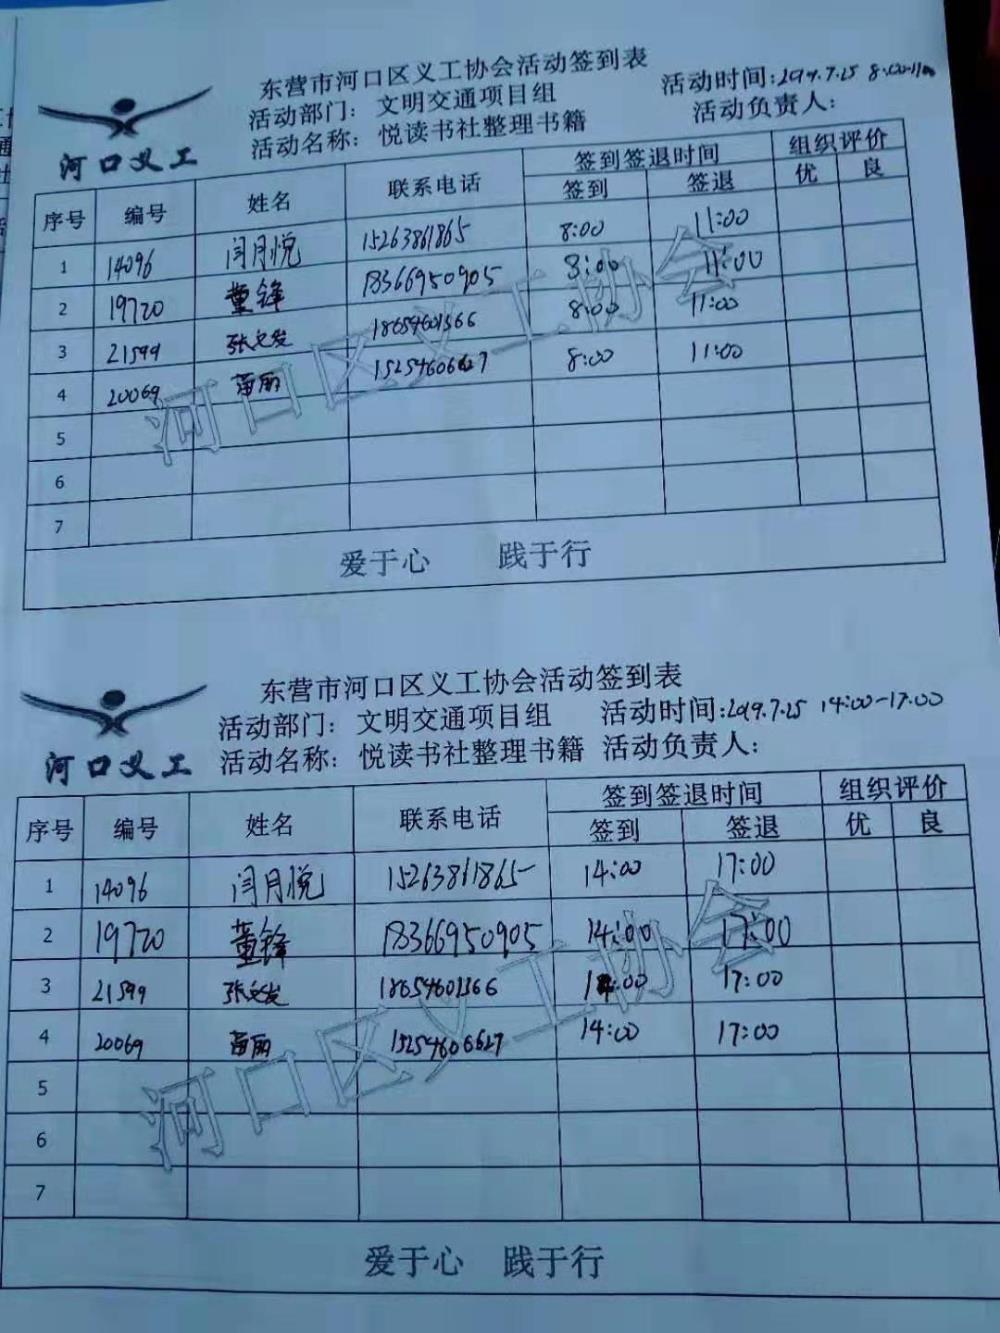 东营市河口区义工协会活动签到表
活动部门: 文明交通项目组 活动时间:2019.7.25 8:00-11:00
活动名称: 悦读书社整理书籍 活动负责人:
河口义工
序号 编号 姓名 联系电话 签到签退时间 组织评价
签到 签退 优 良
1 14096 闫月悦 15263861865 8:00 11:00
2 19720 董锋 18366950905 8:00 11:00
3 21599 张文发 18654601366 8:00 11:00
4 20069 苗丽 15254606627 8:00 11:00
5
6
7
爱于心 践于行
河口区义工协会
东营市河口区义工协会活动签到表
活动部门: 文明交通项目组 活动时间:2019.7.25 14:00-17:00
活动名称: 悦读书社整理书籍 活动负责人:
河口义工
序号 编号 姓名 联系电话 签到签退时间 组织评价
签到 签退 优 良
1 14096 闫月悦 15263861865 14:00 17:00
2 19720 董锋 18366950905 14:00 17:00
3 21599 张文发 18654601366 14:00 17:00
4 20069 苗丽 15254606627 14:00 17:00
5
6
7
爱于心 践于行
河口区义工协会